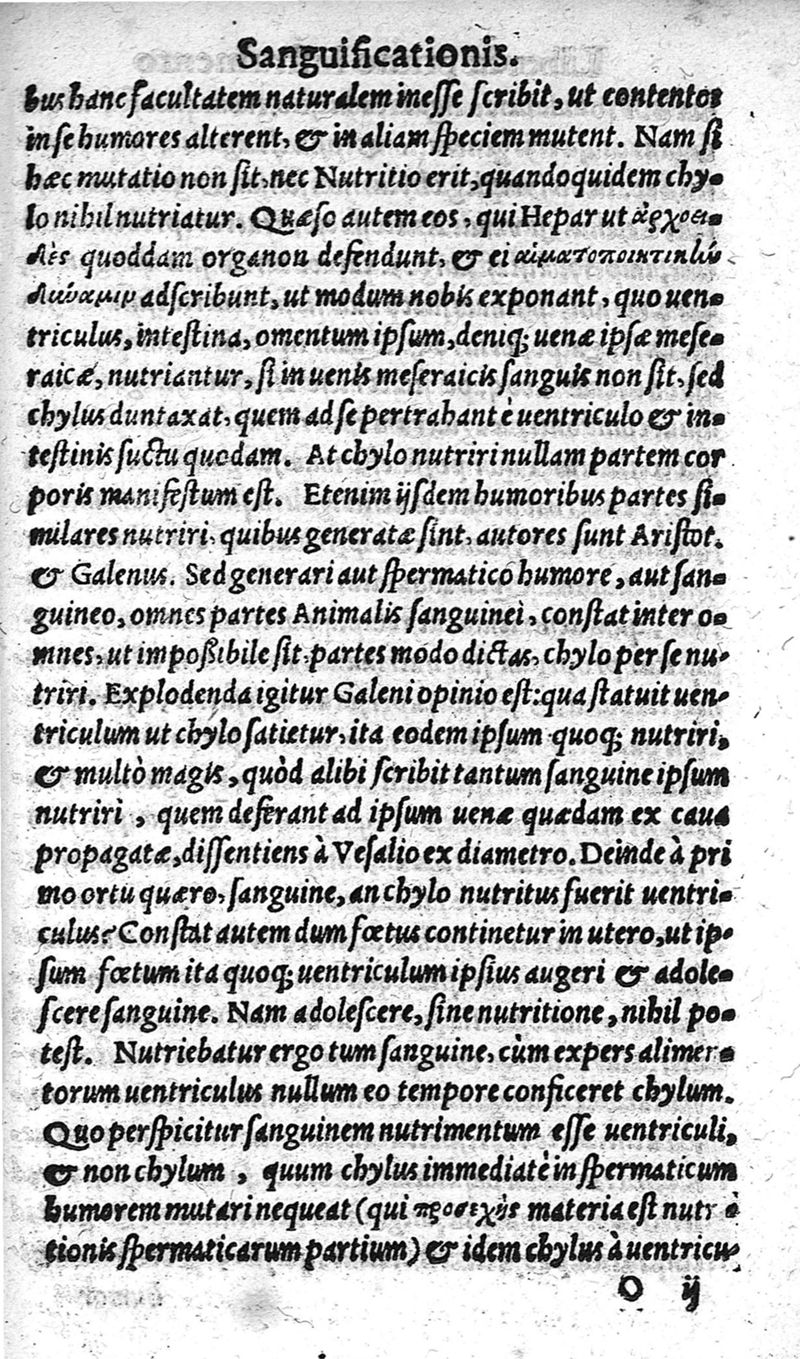 Sanguificationis.
bus hanc facultatem naturalem inesse scribit, ut contentos
in se humores alterent, & in aliam speciem mutent. Nam si
hæc mutatio non sit, nec Nutritio erit, quandoquidem chy-
lo nihil nutriatur. Quæso autem eos, qui Hepar ut ἀρχοει-
δὲς quoddam organon defendunt, & ei αἱματοποιητικὴν
δύναμιν adscribunt, ut modum nobis exponant, quo uen-
triculus, intestina, omentum ipsum, deniq; uenæ ipsæ mese-
raicæ, nutriantur, si in uenis meseraicis sanguis non sit, sed
chylus duntaxat, quem ad se pertrahant è uentriculo & in-
testinis suctu quodam. At chylo nutriri nullam partem cor
poris manifestum est. Etenim ijsdem humoribus partes si-
milares nutriri, quibus generatæ sint, autores sunt Aristot.
& Galenus. Sed generari aut spermatico humore, aut san-
guineo, omnes partes Animalis sanguinei, constat inter o-
mnes, ut impoßibile sit, partes modo dictas, chylo per se nu-
triri. Explodenda igitur Galeni opinio est: qua statuit uen-
triculum ut chylo satietur, ita eodem ipsum quoq; nutriri,
& multò magis, quòd alibi scribit tantum sanguine ipsum
nutriri, quem deferant ad ipsum uenæ quædam ex caua
propagatæ, dissentiens à Vesalio ex diametro. Deinde à pri
mo ortu quæro, sanguine, an chylo nutritus fuerit uentri-
culus? Constat autem dum fœtus continetur in utero, ut ip-
sum fœtum ita quoq; uentriculum ipsius augeri & adole-
scere sanguine. Nam adolescere, sine nutritione, nihil po-
test. Nutriebatur ergo tum sanguine, cùm expers alimen-
torum uentriculus nullum eo tempore conficeret chylum.
Quo perspicitur sanguinem nutrimentum esse uentriculi,
& non chylum, quum chylus immediatè in spermaticum
humorem mutari nequeat (qui προσεχὴς materia est nutri
tionis spermaticarum partium) & idem chylus à uentricu-
O ij